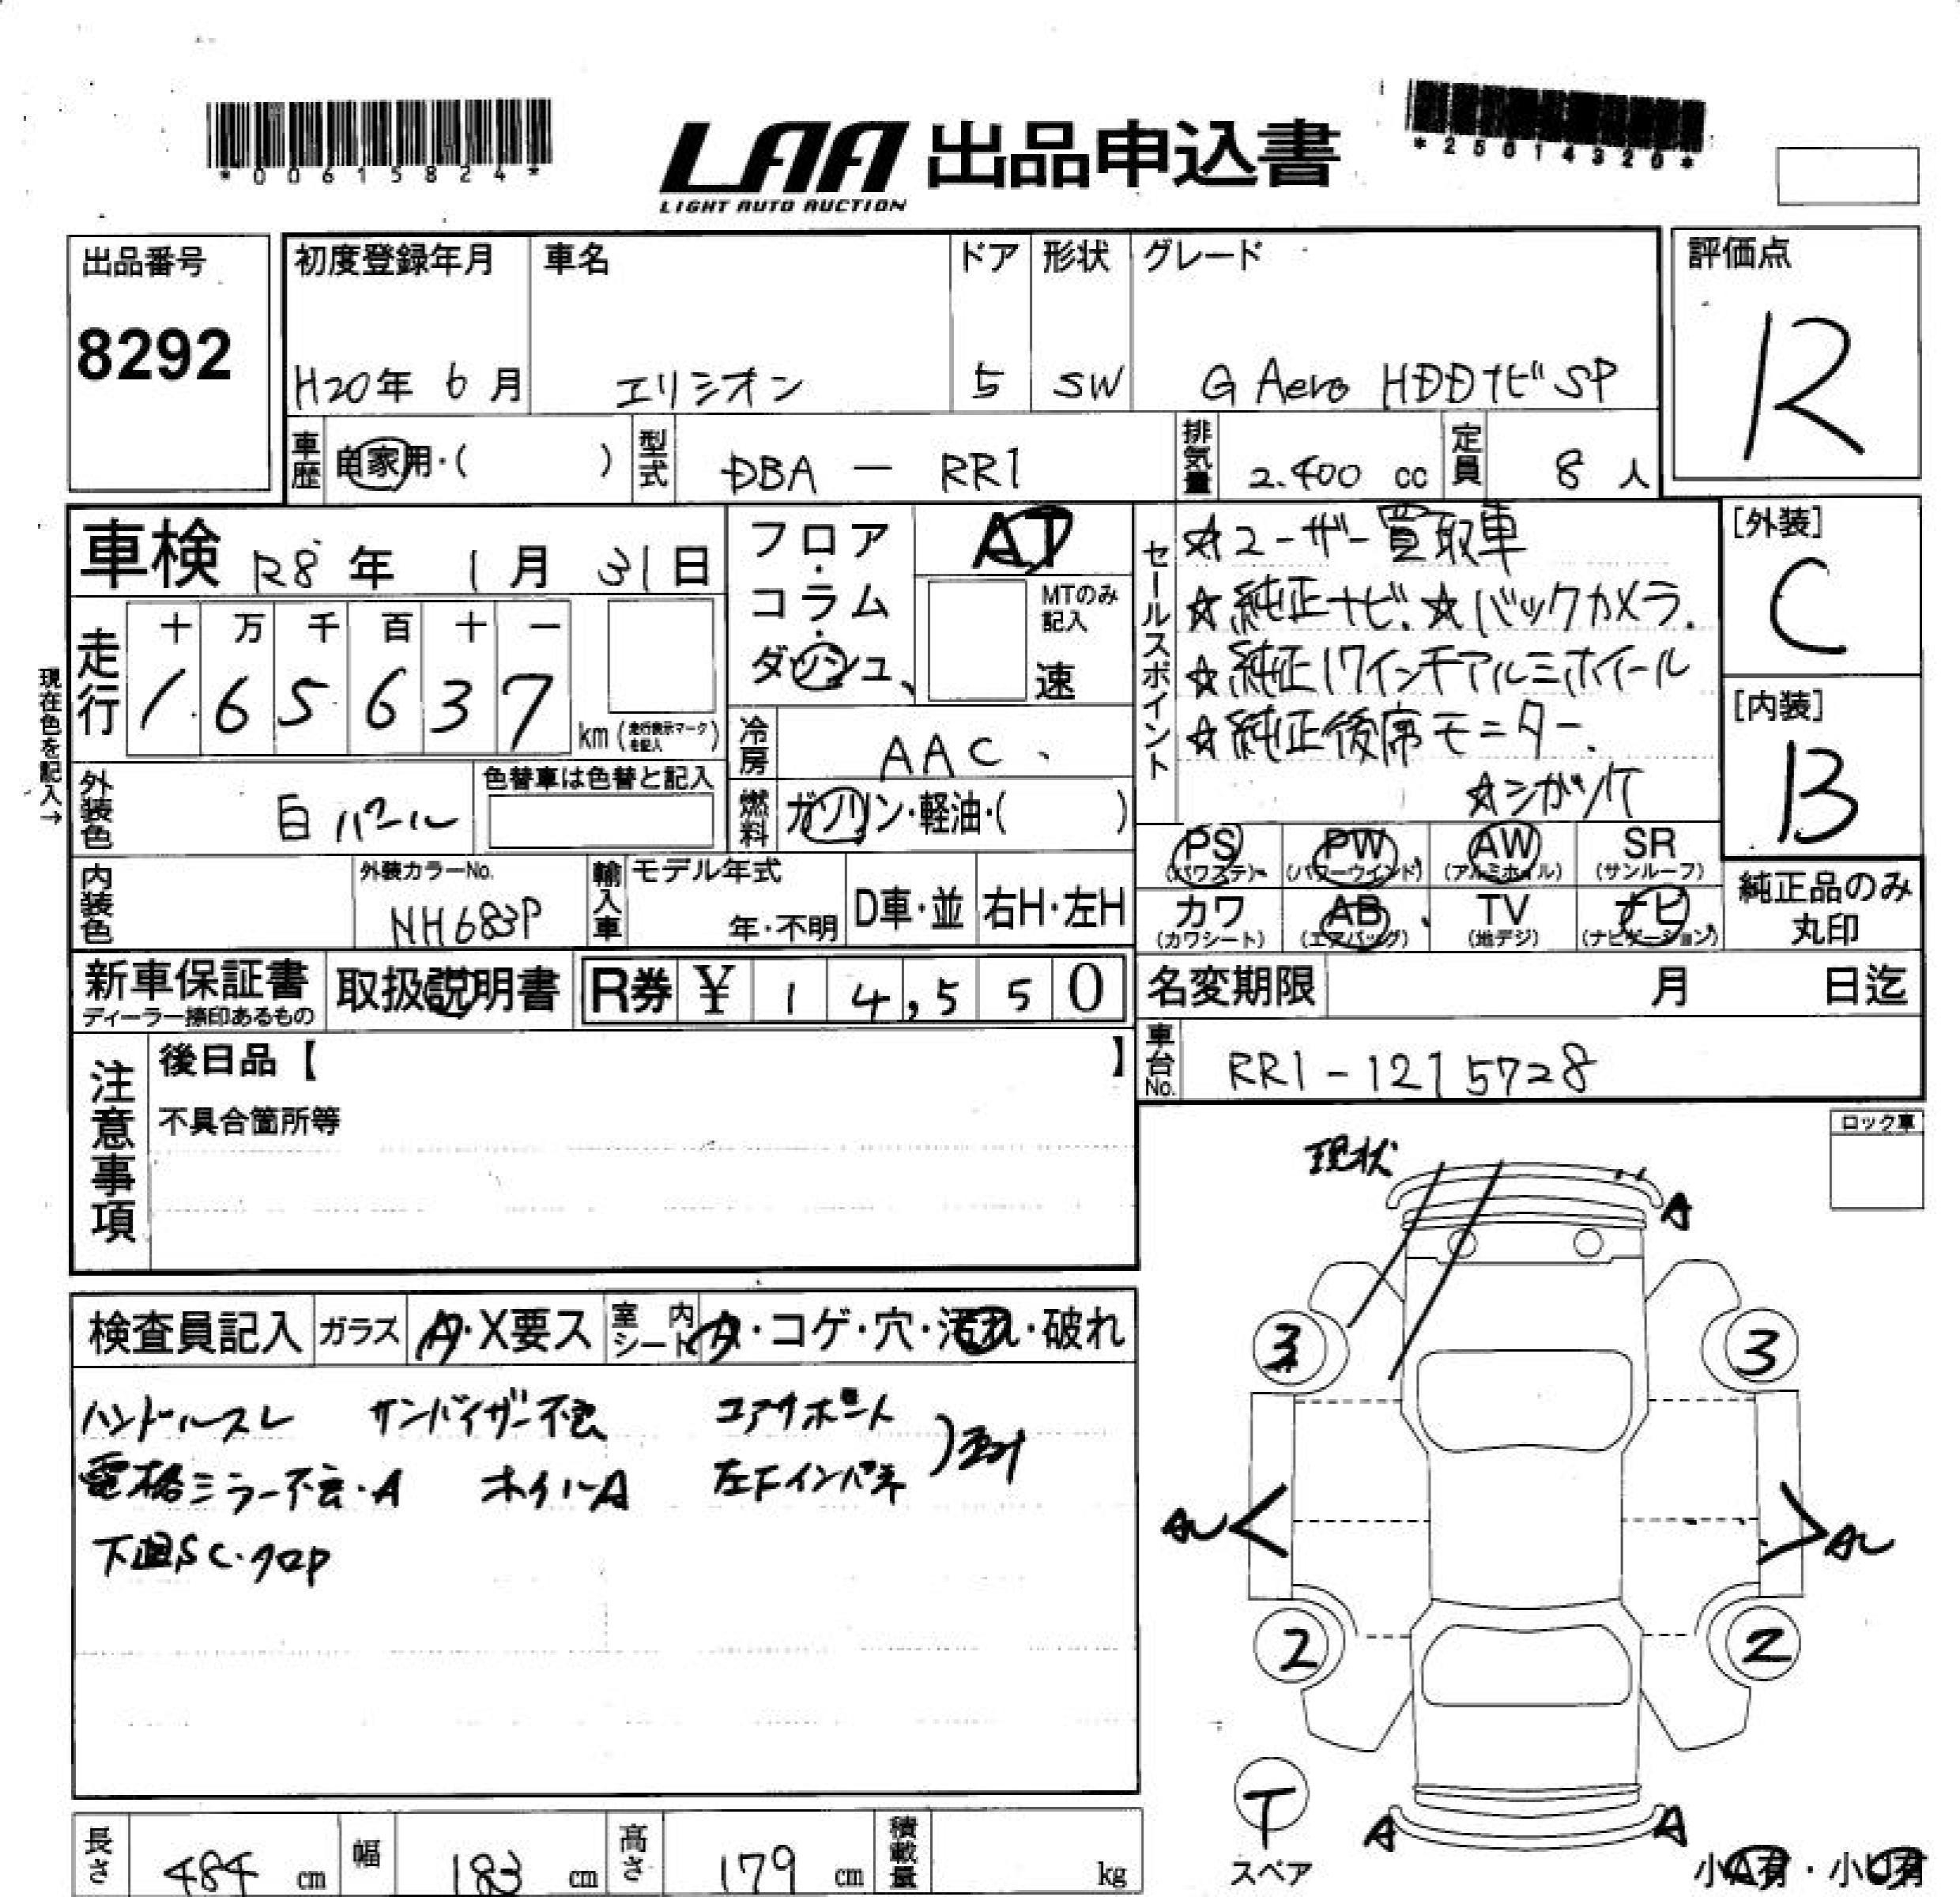 *00615824*
LAA 出品申込書
LIGHT AUTO AUCTION
*25014320*
出品番号
8292
初度登録年月
H20年 6月
車名
エリシオン
ドア
5
形状
SW
グレード
G Aero HDDナビSP
評価点
R
車歴
自家用・( )
型式
DBA － RR1
排気量
2.400 cc
定員
8 人
車検 R8年 1月 31日
フロア・コラム・ダッシュ
AT
MTのみ記入
速
セールスポイント
☆ユーザー買取車
☆純正ナビ.☆バックカメラ.
☆純正17インチアルミホイール
☆純正後席モニター.
[外装]
C
[内装]
B
現在色を記入→
走行
十 万 千 百 十 一
1 6 5 6 3 7
km (走行表示マークを記入)
冷房
AAC
外装色
白パール
色替車は色替と記入
燃料
ガソリン・軽油・( )
PS (パワステ) PW (パワーウインド) AW (アルミホイル) SR (サンルーフ)
カワ (カワシート) AB (エアバッグ) TV (地デジ) ナビ (ナビゲーション)
純正品のみ
丸印
内装色
外装カラーNo.
NH683P
輸入車
モデル年式
年・不明
D車・並
右H・左H
新車保証書
ディーラー捺印あるもの
取扱説明書
R券 ¥ 14,550
名変期限 月 日迄
車台No.
RR1-1215728
注意事項
後日品【 】
不具合箇所等
ロック車
現状
A
3 3
検査員記入 ガラス A・X要ス 室内シート ・コゲ・穴・汚れ・破れ
ハンドルスレ サンバイザー不良 コアサポート
電格ミラー不良・A ホイルA 左Fインパネ
下廻SC・クロP
AU AU
2 2
T
スペア
A A
小A有・小U有
長さ 484 cm 幅 183 cm 高さ 179 cm 積載量 kg